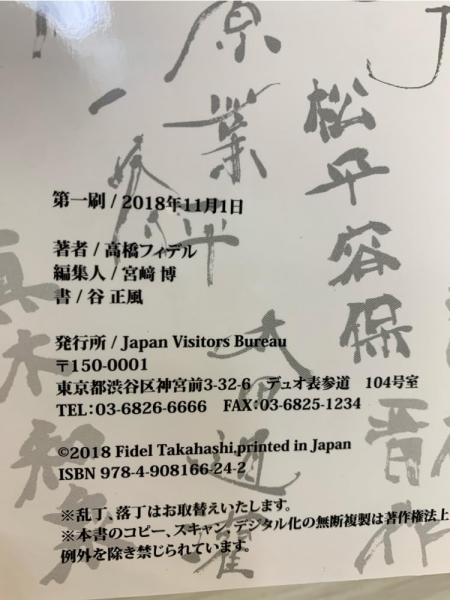 第一刷 / 2018年11月1日
著者 / 高橋フィデル
編集人 / 宮﨑 博
書 / 谷 正風
発行所 / Japan Visitors Bureau
〒150-0001
東京都渋谷区神宮前3-32-6 デュオ表参道 104号室
TEL:03-6826-6666 FAX:03-6825-1234
©2018 Fidel Takahashi,printed in Japan
ISBN 978-4-908166-24-2
※乱丁、落丁はお取替えいたします。
※本書のコピー、スキャン、デジタル化の無断複製は著作権法上
例外を除き禁じられています。
松平容保
原業平
太田道灌
真木和泉
晋作